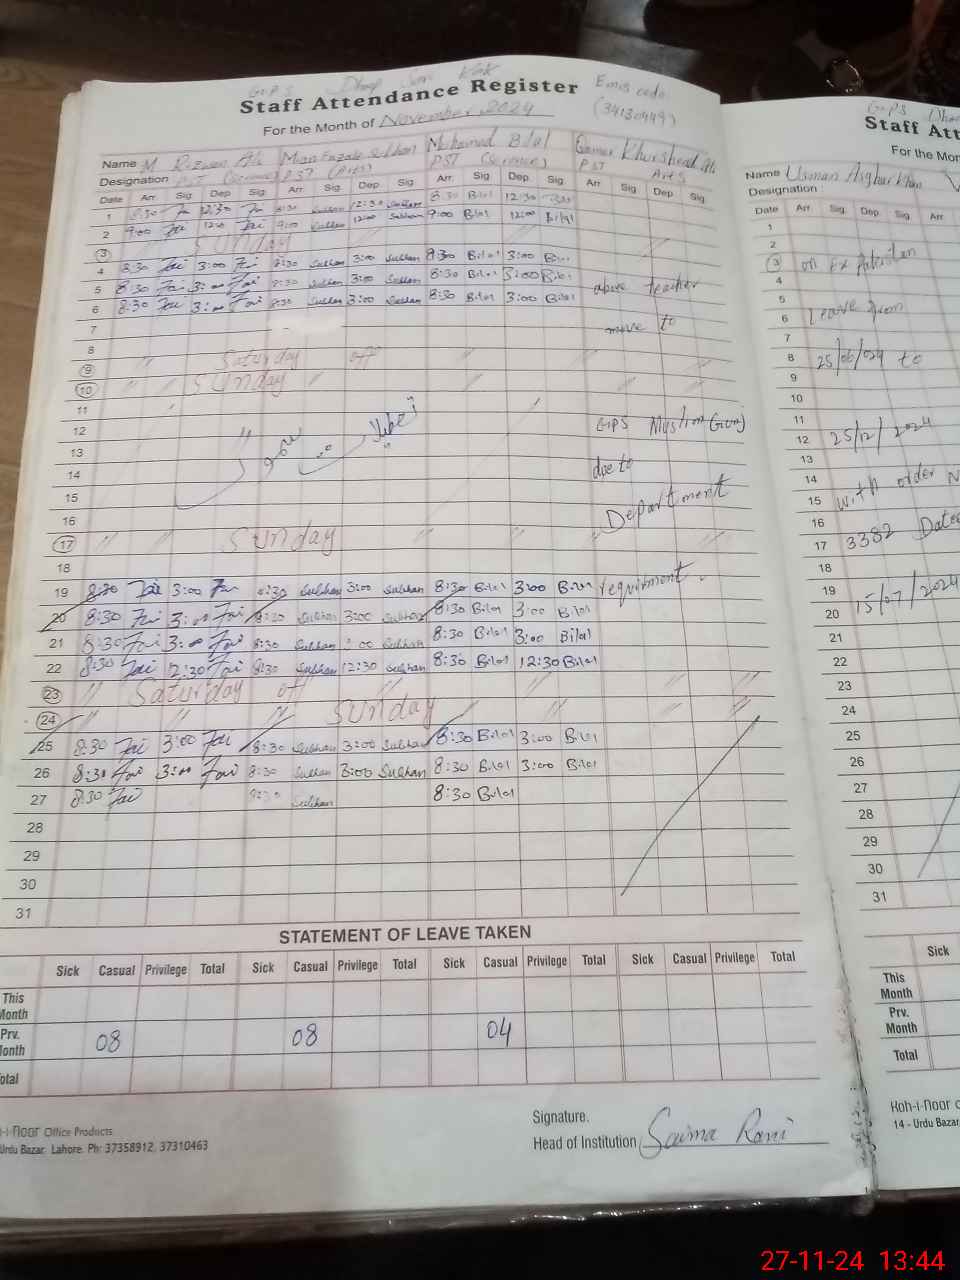 GPS Dhop Sari
Staff Attendance Register
Emis code
(34130449)
For the Month of November 2024
Name M Rizwan Ali Mian Fazale Subhan Muhamad Bilal Qamar Khursheed Ali
Designation PST (Science) PST (Arts) PST (Science) PST Arts
Date Arr. Sig. Dep. Sig. Arr. Sig. Dep. Sig. Arr. Sig. Dep. Sig. Arr. Sig. Dep. Sig.
1 8:30 12:30 8:30 Subhan 12:30 Subhan 8:30 Bilal 12:30 Bilal
2 9:00 12:00 9:00 Subhan 12:00 Subhan 9:00 Bilal 12:00 Bilal
3 Sunday
4 8:30 3:00 8:30 Subhan 3:00 Subhan 8:30 Bilal 3:00 Bilal
5 8:30 3:00 8:30 Subhan 3:00 Subhan 8:30 Bilal 3:00 Bilal above teacher
6 8:30 3:00 8:30 Subhan 3:00 Subhan 8:30 Bilal 3:00 Bilal
7 move to
8
9 Saturday off
10 Sunday
11
12 GPS Muslim
13 تعطیلات سموگ
14 due to
15
16 Department
17 Sunday
18
19 8:30 3:00 8:30 Subhan 3:00 Subhan 8:30 Bilal 3:00 Bilal requirment.
20 8:30 3:00 8:30 Subhan 3:00 Subhan 8:30 Bilal 3:00 Bilal
21 8:30 3:00 8:30 Subhan 3:00 Subhan 8:30 Bilal 3:00 Bilal
22 8:30 12:30 8:30 Subhan 12:30 Subhan 8:30 Bilal 12:30 Bilal
23 Saturday off
24 Sunday
25 8:30 3:00 8:30 Subhan 3:00 Subhan 8:30 Bilal 3:00 Bilal
26 8:30 3:00 8:30 Subhan 3:00 Subhan 8:30 Bilal 3:00 Bilal
27 8:30 8:30 Subhan 8:30 Bilal
28
29
30
31
STATEMENT OF LEAVE TAKEN
Sick Casual Privilege Total Sick Casual Privilege Total Sick Casual Privilege Total Sick Casual Privilege Total
This
Month
Prv.
Month 08 08 04
Total
Signature.
Head of Institution Saima Rani
h-i-noor Office Products
Urdu Bazar, Lahore. Ph: 37358912, 37310463
GPS
Staff Att
For the Mon
Name Usman Asghar Khan
Designation :
Date Arr. Sig. Dep. Sig. Arr.
1
2
3 on Ex Pakistan
4
5
6 Leave from
7
8 25/06/024 to
9
10
11
12 25/12/2024
13
14
15 with order N
16
17 3382 Dated
18
19
20 15/07/2024
21
22
23
24
25
26
27
28
29
30
31
Sick
This
Month
Prv.
Month
Total
Koh-i-noor
14 - Urdu Bazar
27-11-24 13:44